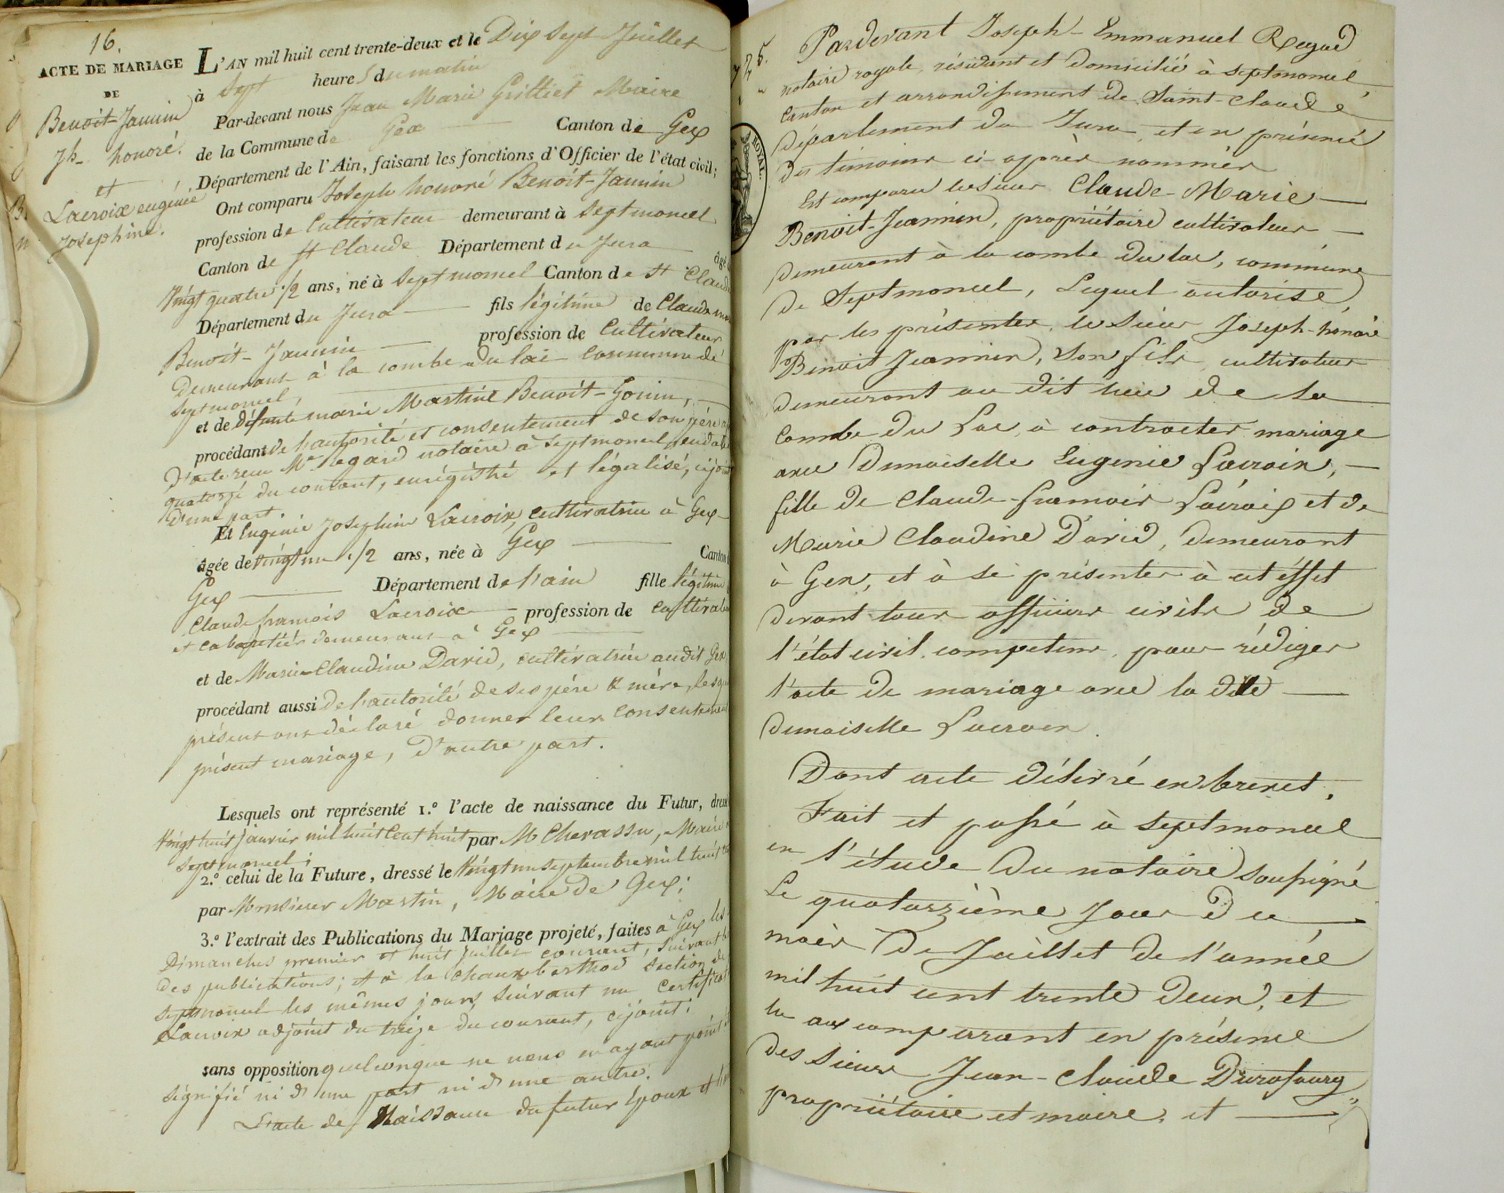 16.
ACTE DE MARIAGE
DE
Benoit-Jannin
Jh honoré.
et
Lacroix eugénie
Josephine.
L'AN mil huit cent trente-deux et le Dix Sept Juillet
à Sept heures du matin
Par-devant nous Jean Marie Grilliet Maire
de la Commune de Gex Canton de Gex
Département de l'Ain, faisant les fonctions d'Officier de l'état civil;
Ont comparu Joseph honoré Benoit-Jannin
profession de Cultivateur demeurant à Septmoncel
Canton de St Claude Département du Jura âgé
Vingt quatre 1/2 ans, né à Septmoncel Canton de St Claude
Département du Jura fils légitime de Claude
Benoit-Jannin profession de Cultivateur
Demeurant à la combe du lac commune de
Septmoncel,
et de défunte marie Martine Benoit-Gonin,
procédant de l'autorité et consentement de son père
d'acte reçu Me Regard notaire à Septmoncel en date
quatorze du courant, enrégistré et légalisé,
d'une part
Et Eugénie Josephine Lacroix, cultivatrice à Gex
agée de vingt un 1/2 ans, née à Gex Canton
Gex Département de l'ain fille légitime
Claude francois Lacroix profession de Cultivateur
et cabaretier demeurant à Gex
et de Marie-Claudine David, cultivatrice audit Gex
procédant aussi de l'autorité de ses père & mère,
présent ont déclaré donner leur Consentement
présent mariage, d'autre part.
Lesquels ont représenté 1.º l'acte de naissance du Futur, dressé
Vingt huit janvier mil huit Cent huit par M Chevassu, Maire
Septmoncel;
2.º celui de la Future, dressé le Vingt un septembre mil huit
par Monsieur Martin, Maire de Gex;
3.º l'extrait des Publications du Mariage projeté, faites à Gex les
Dimanches premier et huit juillet courant, suivant
des publications; & à la chaux berthod section de
septmoncel les mêmes jours suivant un certificat
Lacroix adjoint du treize du courant, cijoint;
sans opposition quelconque ne nous en ayant point
signifié ni d'une part ni d'une autre.
L'acte de Naissance du futur Epoux et
ROYAL.
Pardevant Joseph-Emmanuel Regad
notaire royale, résidant et domicilié à Septmoncel,
Canton et arrondissement de Saint-Claude,
département du Jura, et en présence
des témoins ci-après nommés
Est comparu le sieur Claude-Marie
Benoit-Jeannin, propriétaire cultivateur
demeurant à la combe du lac, commune
de Septmoncel, Lequel autorise
par les présentes, le Sieur Joseph-honoré
Benoit Jeannin, son fils, cultivateur
demeurant au dit lieu de la
Combe du Lac, à contracter mariage
avec Demoiselle Eugenie Lacroix,
fille de Claude-francois Lacroix et de
Marie Claudine David, demeurant
à Gex, et à se présenter à cet éffet
devant tous officiers civils de
l'état civil competens, pour rédiger
l'acte de mariage avec la dite
demoiselle Lacroix.
Dont acte délivré en brevet.
Fait et passé à Septmoncel
en l'étude du notaire soussigné
Le quatorzième jour du
mois de Juillet de l'année
mil huit cent trente deux, et
lu au comparant en présence
des Sieurs Jean-Claude Durafourg,
propriétaire et maire, et